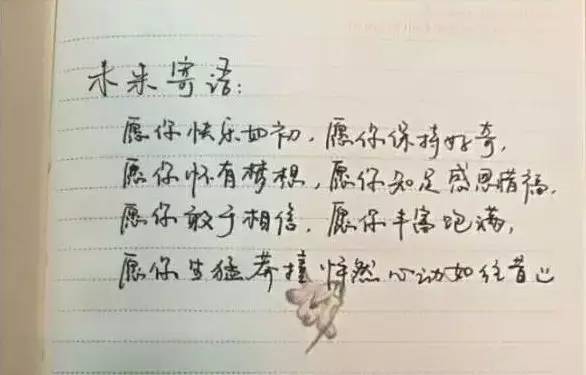 未来寄语：
愿你快乐如初，愿你保持好奇，
愿你怀有梦想，愿你知足感恩惜福，
愿你敢于相信，愿你丰富饱满，
愿你生猛莽撞 怦然心动如往昔